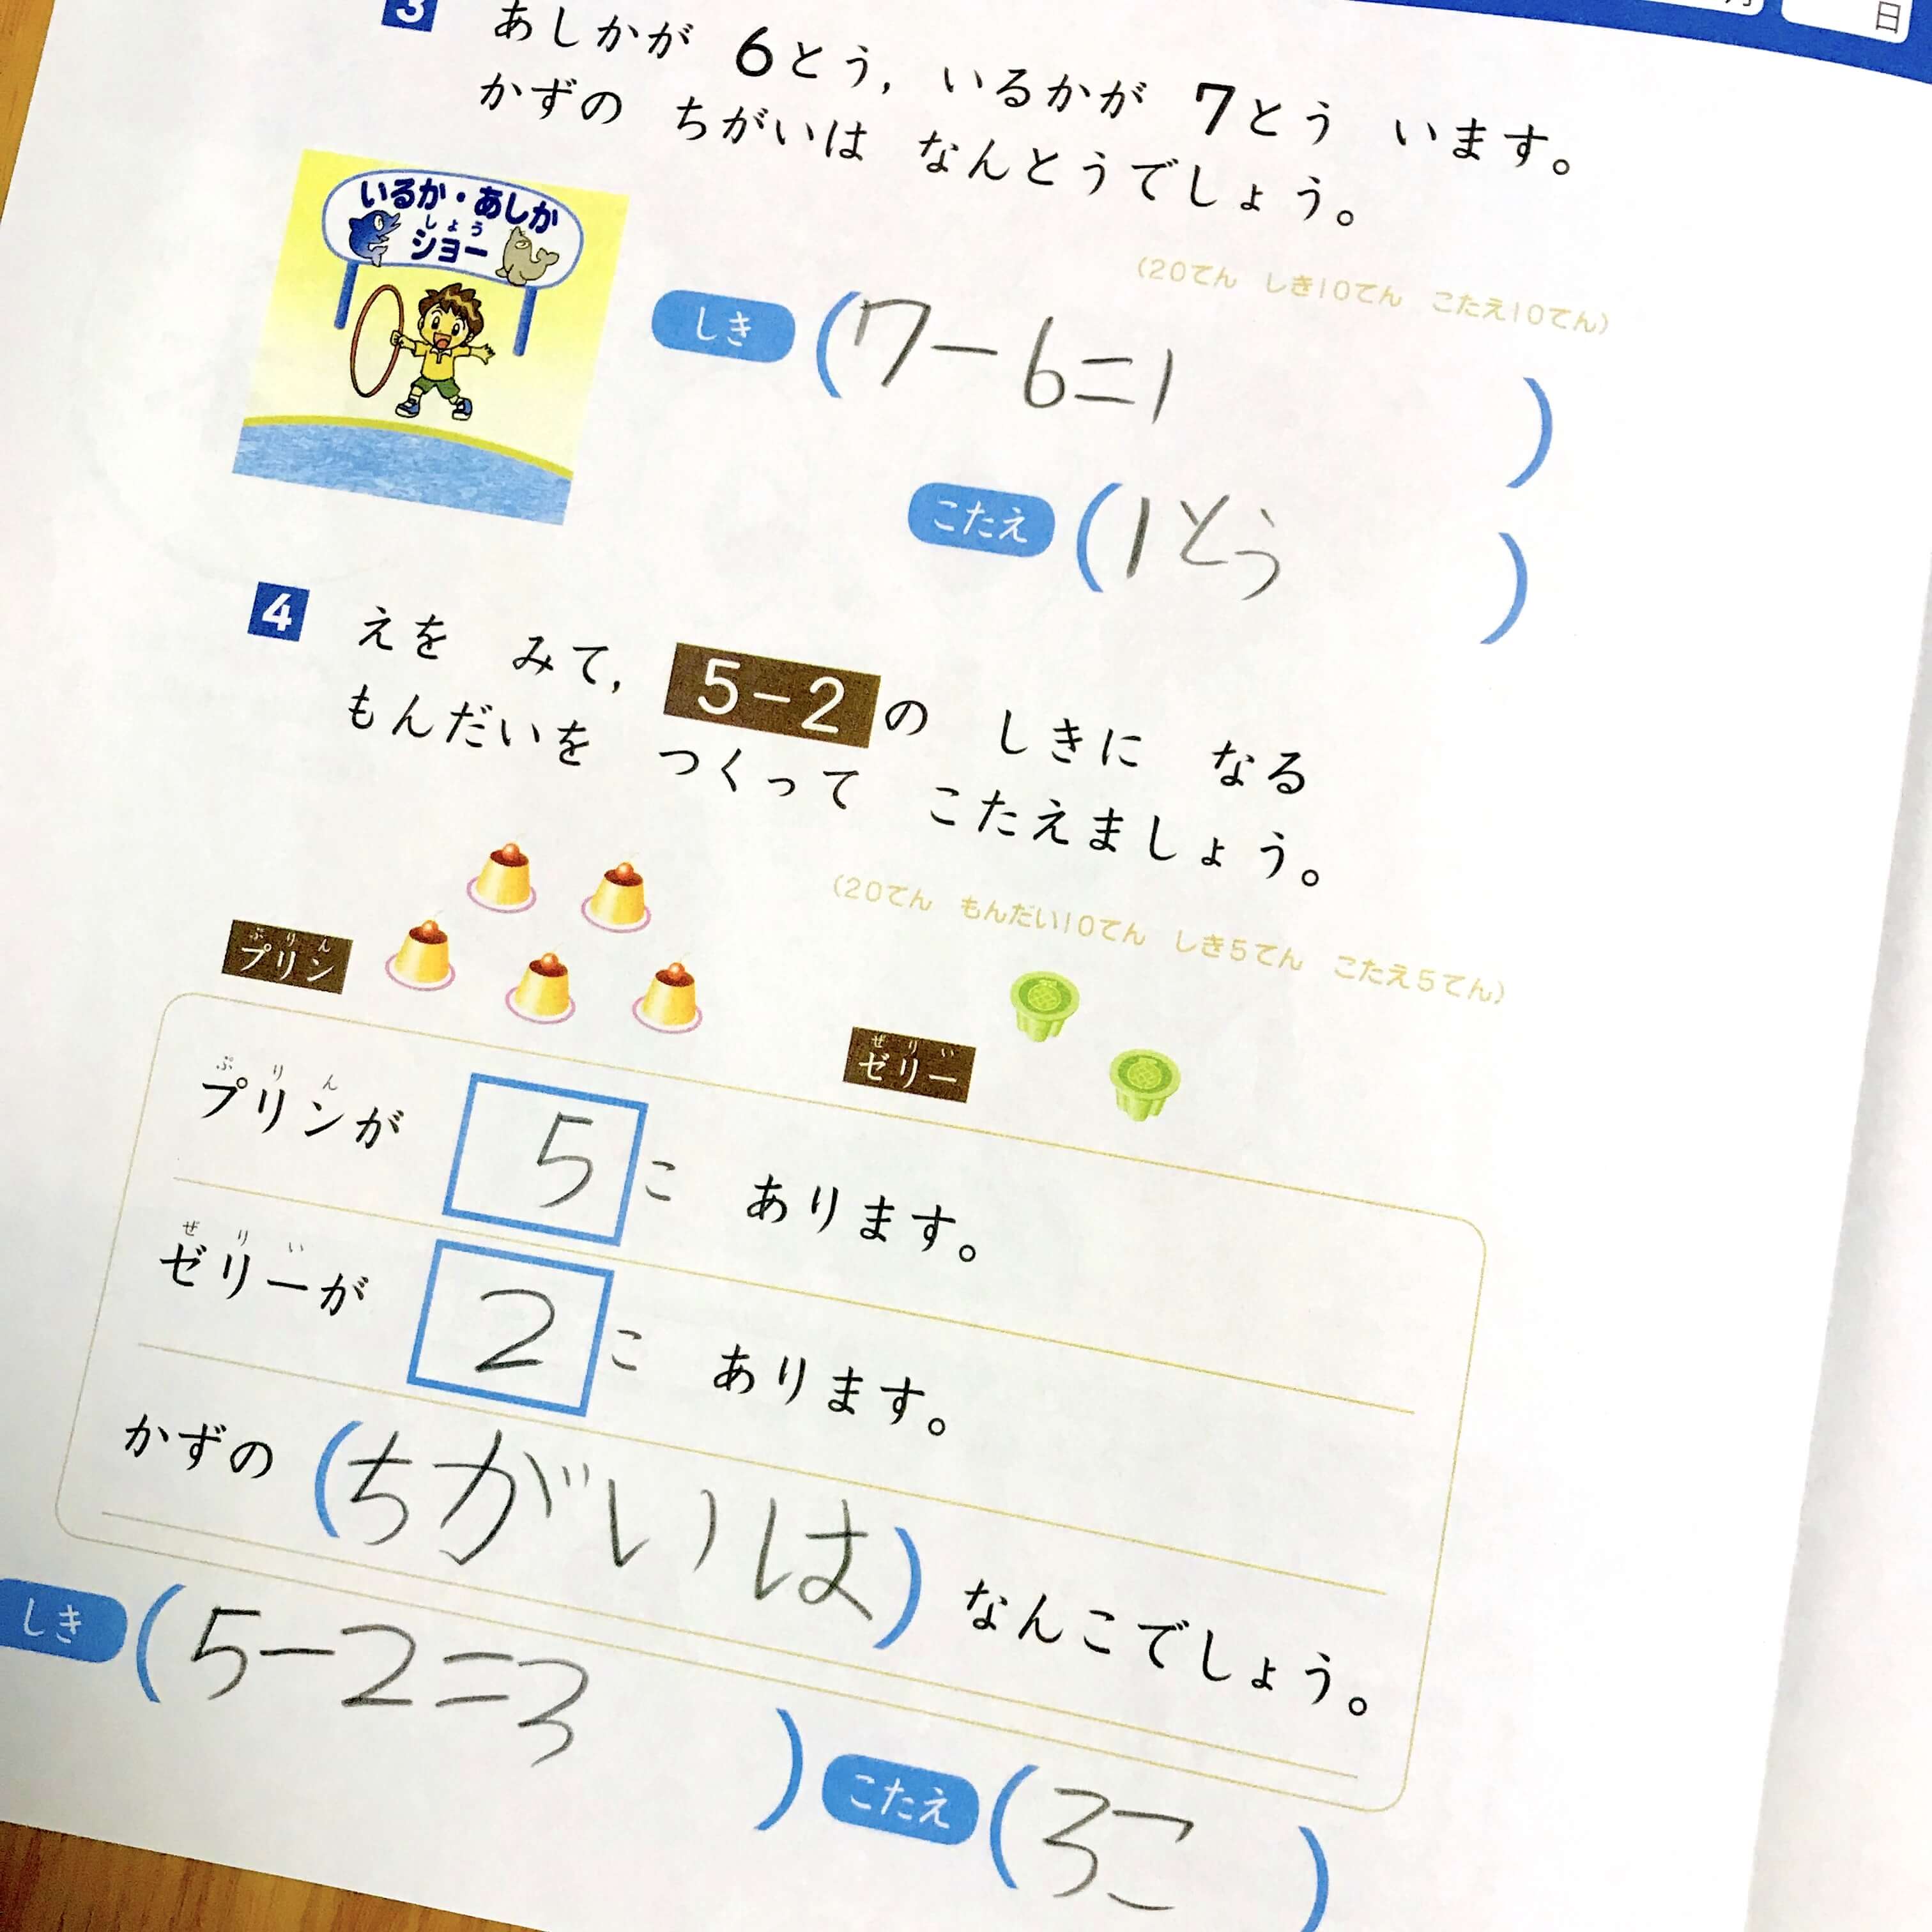 日
3 あしかが 6とう, いるかが 7とう います。
かずの ちがいは なんとうでしょう。
(20てん しき10てん こたえ10てん)
いるか・あしか
しょう
ショー
しき (7-6=1)
こたえ (1とう)
4 えを みて, 5-2の しきに なる
もんだいを つくって こたえましょう。
(20てん もんだい10てん しき5てん こたえ5てん)
ぷりん
プリン
ぜりい
ゼリー
ぷりん
プリンが 5こ あります。
ぜりい
ゼリーが 2こ あります。
かずの (ちがいは) なんこでしょう。
しき (5-2=3) こたえ (3こ)